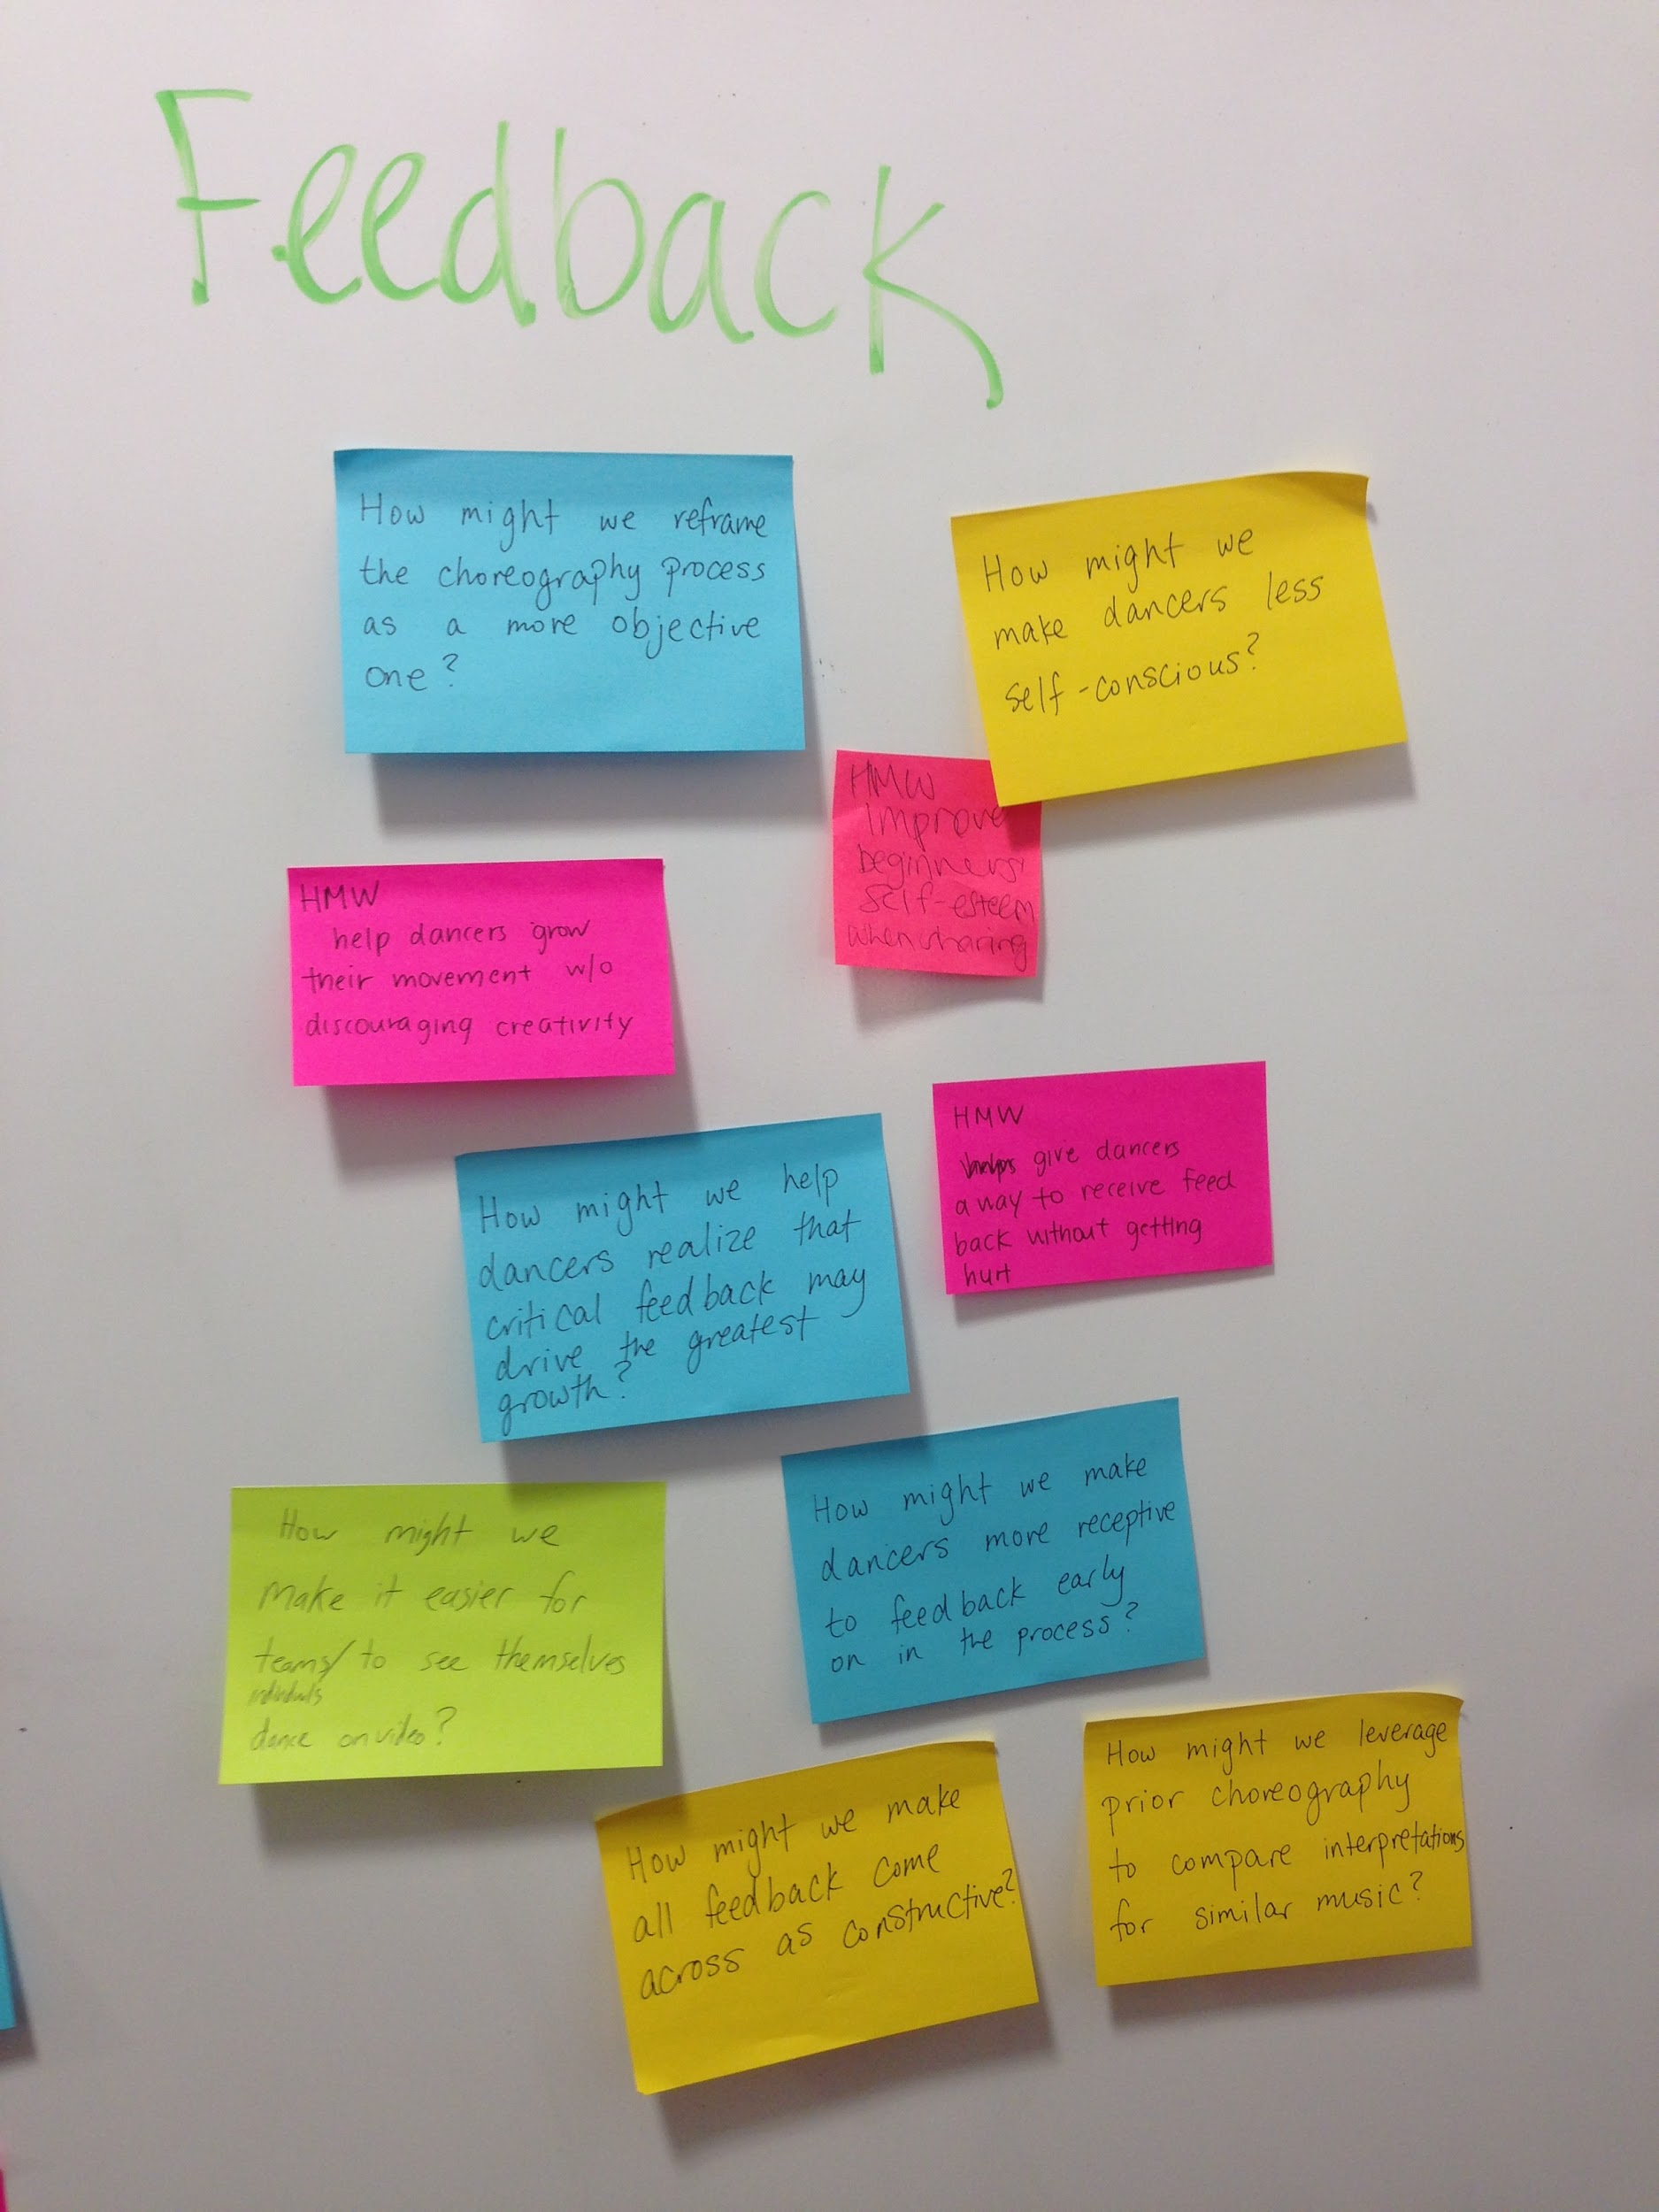 Feedback
How might we reframe
the choreography process
as a more objective
one?
How might we
make dancers less
self-conscious?
HMW
improve
beginners'
self-esteem
when sharing
HMW
help dancers grow
their movement w/o
discouraging creativity
HMW
give dancers
a way to receive feed
back without getting
hurt
How might we help
dancers realize that
critical feedback may
drive the greatest
growth?
How might we make
dancers more receptive
to feedback early
on in the process?
How might we
make it easier for
teams/ to see themselves
individuals
dance on video?
How might we make
all feedback come
across as constructive?
How might we leverage
prior choreography
to compare interpretations
for similar music?